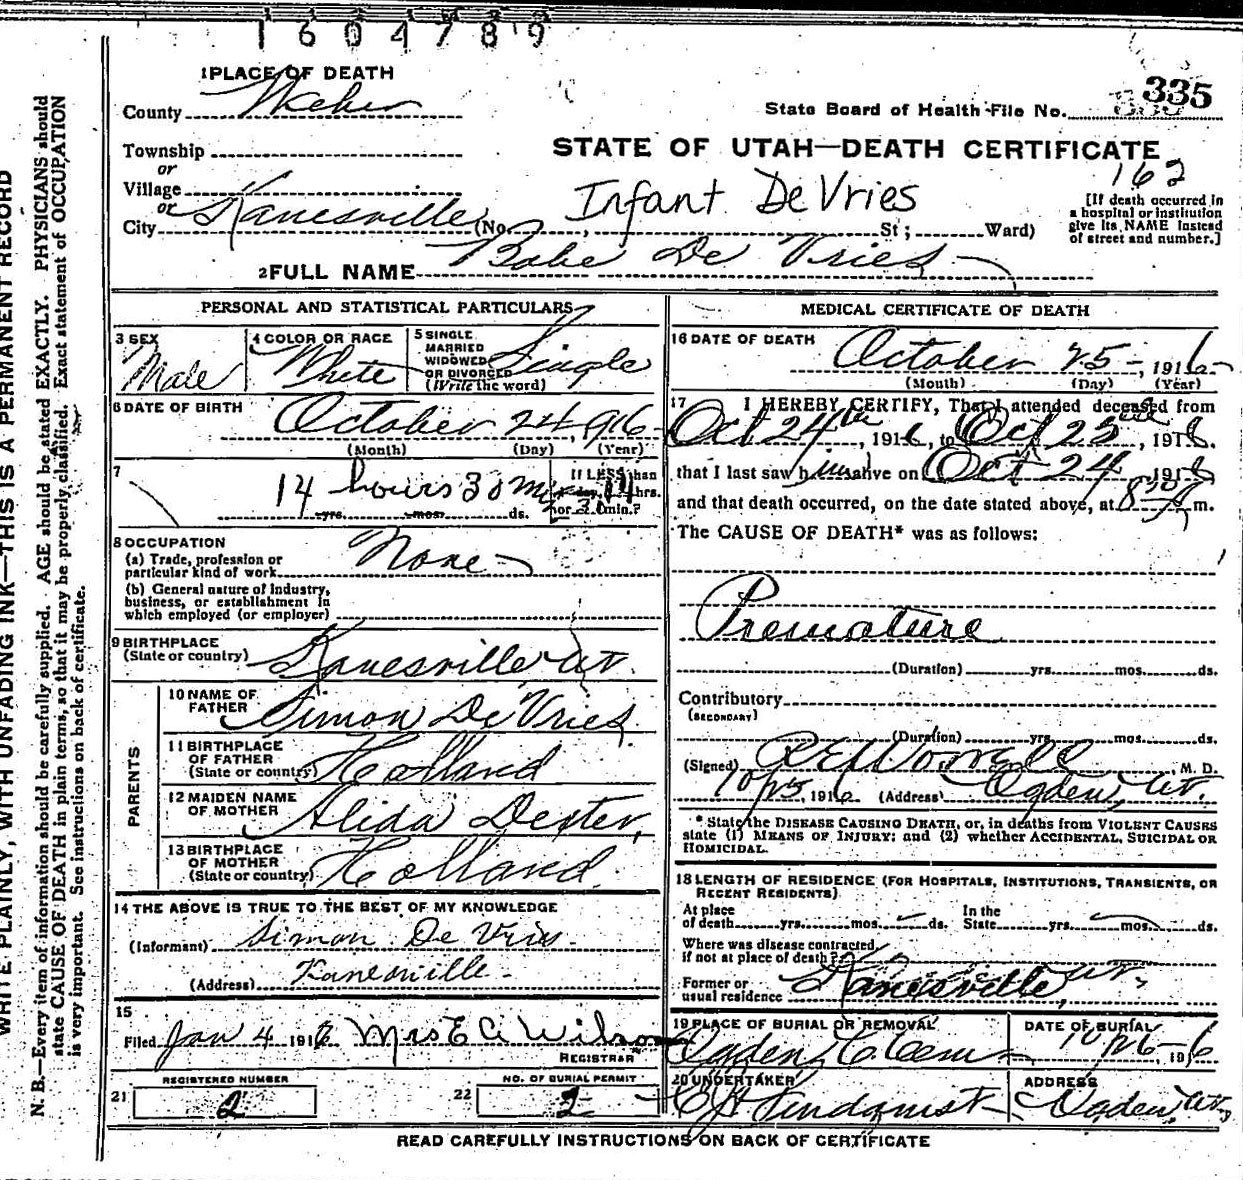 1604789
1 PLACE OF DEATH
335
County Weber
State Board of Health File No.
Township
STATE OF UTAH—DEATH CERTIFICATE
or
162
Village
Infant De Vries
[If death occurred in a hospital or institution give its NAME instead of street and number.]
or
City Kanesville (No. St; Ward)
2 FULL NAME Babe De Vries
PERSONAL AND STATISTICAL PARTICULARS
3 SEX Male
4 COLOR OR RACE White
5 SINGLE MARRIED WIDOWED OR DIVORCED (Write the word) Single
6 DATE OF BIRTH October 24, 1916
(Month) (Day) (Year)
7 14 hours 30 Min
If LESS than
yrs. mos. ds. or 30 min.?
8 OCCUPATION
(a) Trade, profession or particular kind of work None
(b) General nature of industry, business, or establishment in which employed (or employer)
9 BIRTHPLACE
(State or country) Kanesville Ut.
PARENTS
10 NAME OF FATHER Simon De Vries
11 BIRTHPLACE OF FATHER (State or country) Holland
12 MAIDEN NAME OF MOTHER Alida Dexter
13 BIRTHPLACE OF MOTHER (State or country) Holland
14 THE ABOVE IS TRUE TO THE BEST OF MY KNOWLEDGE
(Informant) Simon De Vries
(Address) Kanesville
15
Filed Jan 4 191 Mrs E A Wilson
REGISTRAR
REGISTERED NUMBER
21 2
NO. OF BURIAL PERMIT
22 2
MEDICAL CERTIFICATE OF DEATH
16 DATE OF DEATH October 25, 1916
(Month) (Day) (Year)
17 I HEREBY CERTIFY, That I attended deceased from
Oct 24th, 1916, to Oct 25, 1916.
that I last saw him alive on Oct 24 1916
and that death occurred, on the date stated above, at 8 30 A m.
The CAUSE OF DEATH* was as follows:
Premature
(Duration) yrs. mos. ds.
Contributory
(SECONDARY)
(Duration) yrs. mos. ds.
(Signed) R E Worrell, M. D.
10/25, 1916 (Address) Ogden, Ut.
* State the DISEASE CAUSING DEATH, or, in deaths from VIOLENT CAUSES
state (1) MEANS OF INJURY; and (2) whether ACCIDENTAL, SUICIDAL OR
HOMICIDAL.
18 LENGTH OF RESIDENCE (FOR HOSPITALS, INSTITUTIONS, TRANSIENTS, OR
RECENT RESIDENTS).
At place of death yrs. mos. ds. In the State yrs. mos. ds.
Where was disease contracted, if not at place of death?
Former or usual residence Kanesville, Ut.
19 PLACE OF BURIAL OR REMOVAL Ogden C. Cem
DATE OF BURIAL 10/26 1916
20 UNDERTAKER Lindquist
ADDRESS Ogden, Ut.
READ CAREFULLY INSTRUCTIONS ON BACK OF CERTIFICATE
WRITE PLAINLY, WITH UNFADING INK—THIS IS A PERMANENT RECORD
N. B.—Every item of information should be carefully supplied. AGE should be stated EXACTLY. PHYSICIANS should
state CAUSE OF DEATH in plain terms, so that it may be properly classified. Exact statement of OCCUPATION
is very important. See instructions on back of certificate.